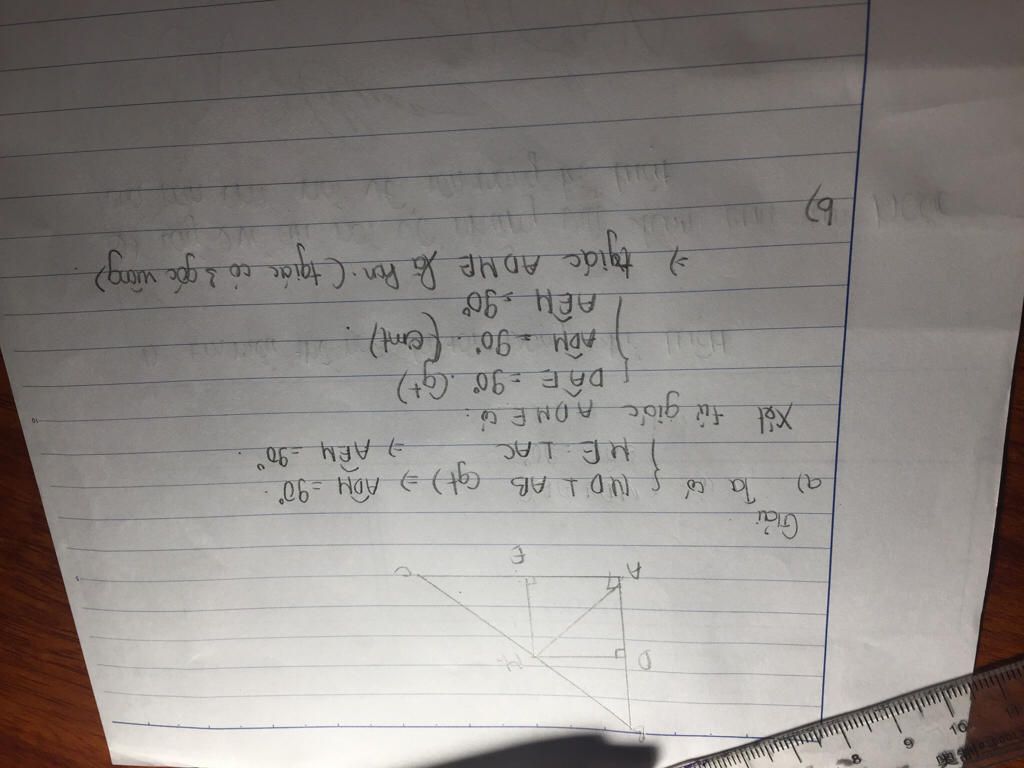 B
D
M
A
E
C
Giải
a) Ta có { MD ⊥ AB (gt) ⇒ ADM̂ = 90°.
ME ⊥ AC ⇒ AÊM = 90°.
Xét tứ giác ADME có:
{ DÂE = 90°. (gt)
AD̂M = 90°. (cmt).
AÊM = 90°
⇒ tgiác ADME là hcn. (tgiác có 3 góc vuông).
b)
8
9
10